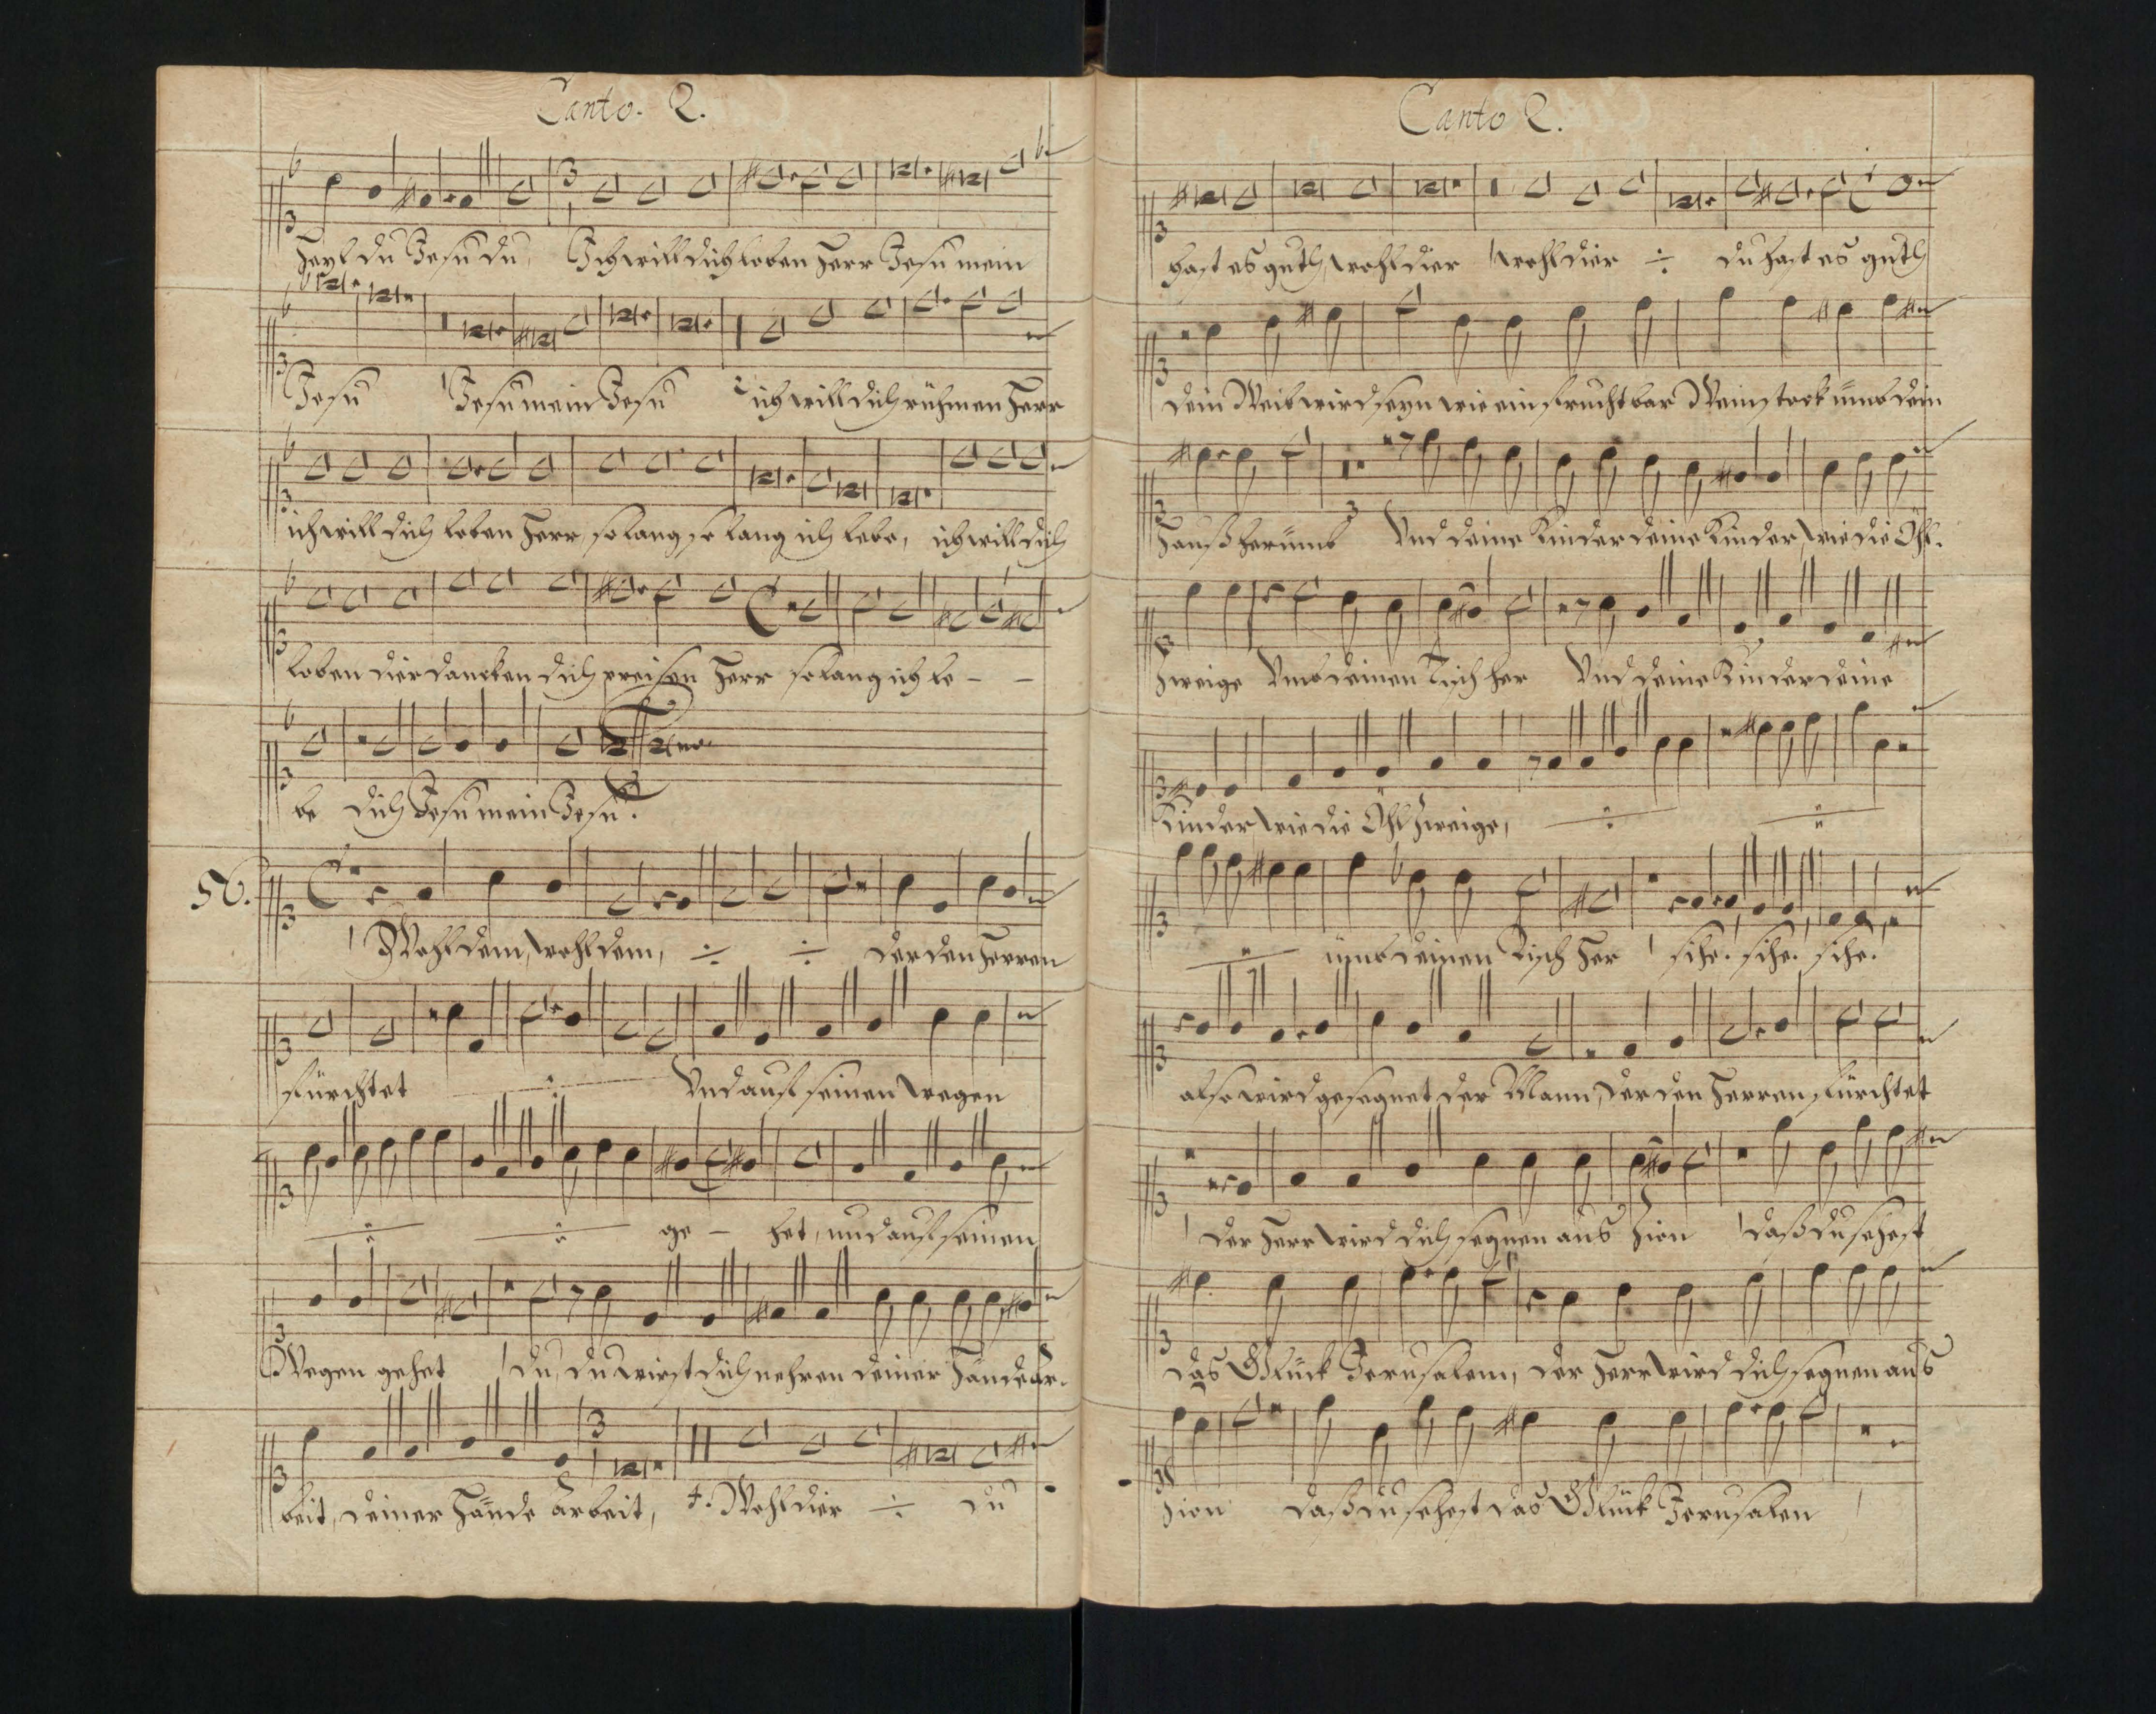 Canto. 2.
Heyl du Jesu du, Ich will dich loben Herr Jesu mein
Jesu Jesu mein Jesu ich will dich rühmen Herr
ich will dich loben Herr, so lang so lang ich lebe, ich will dich
loben dier dancken dich preisen Herr so lang ich le - -
be dich Jesu mein Jesu.
56.
Wohl dem, wohl dem, ÷ ÷ der den Herren
fürchtet ÷ Vnd auf seinen wegen
÷ ÷ ge - het, und auf seinen
Wegen gehet du, du wirst dich nehren deiner Hände Ar-
beit, deiner Hände arbeit, 4. Wohl dier ÷ du
Canto 2.
hast es guth, wohl dier wohl dier ÷ du hast es guth
dein Weib wird seyn wie ein fruchtbar Weinstock umb dein
Hauß herumb Vnd deine Kinder deine Kinder, wie die Öhl-
zweige Vmb deinen Tisch her Vnd deine Kinder deine
Kinder wie die Öhl zweige, ÷ ÷
÷ umb deinen Tisch her sihe. sihe. sihe.
also wird gesegnet der Mann, der den Herren fürchtet
der Herr wird dich segnen aus Zion daß du sehest
das Glück Jerusalem, der Herr wird dich segnen aus
Zion daß du sehest das Glück Jerusalen